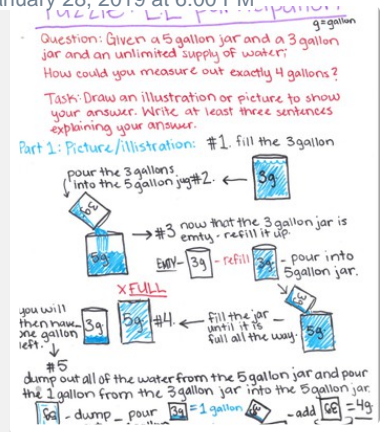 January 28, 2019 at 6:00 PM
g=gallon
Question: Given a 5 gallon jar and a 3 gallon
jar and an unlimited supply of water;
How could you measure out exactly 4 gallons?
Task: Draw an illustration or picture to show
your answer. Write at least three sentences
explaining your answer.
Part 1: Picture/illistration: #1. fill the 3gallon
pour the 3 gallons
into the 5gallon jug #2. ← 3g
3g
5g
→ #3 now that the 3 gallon jar is
emty - refill it up.
EMTY - 3g - refill 3g - pour into
5gallon jar.
x FULL
3g
you will
then have
one gallon
left.
3g
5g #4. ← fill the jar
until it is
full all the way.
5g
#5
dump out all of the water from the 5 gallon jar and pour
the 1 gallon from the 3 gallon jar into the 5gallon jar.
5g - dump - pour 3g = 1 gallon - add = 4g